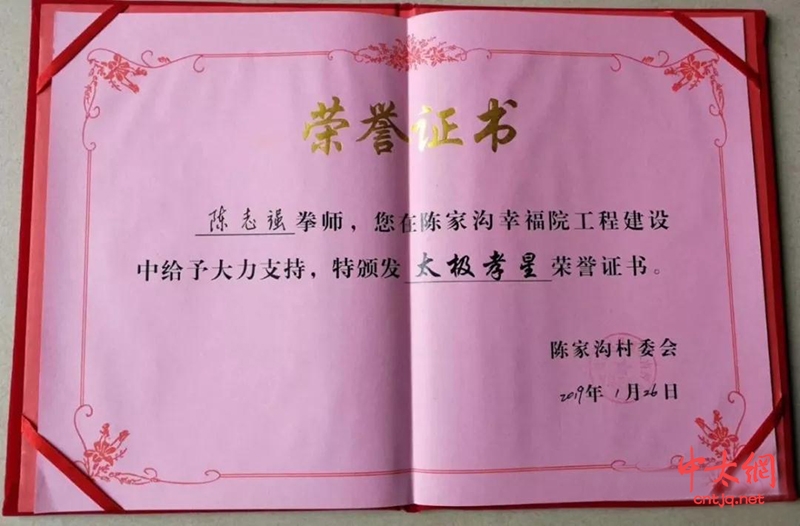 荣誉证书
陈志强拳师，您在陈家沟幸福院工程建设
中给予大力支持，特颁发太极孝星荣誉证书。
陈家沟村委会
2019年1月26日
中太網
cntjq.net